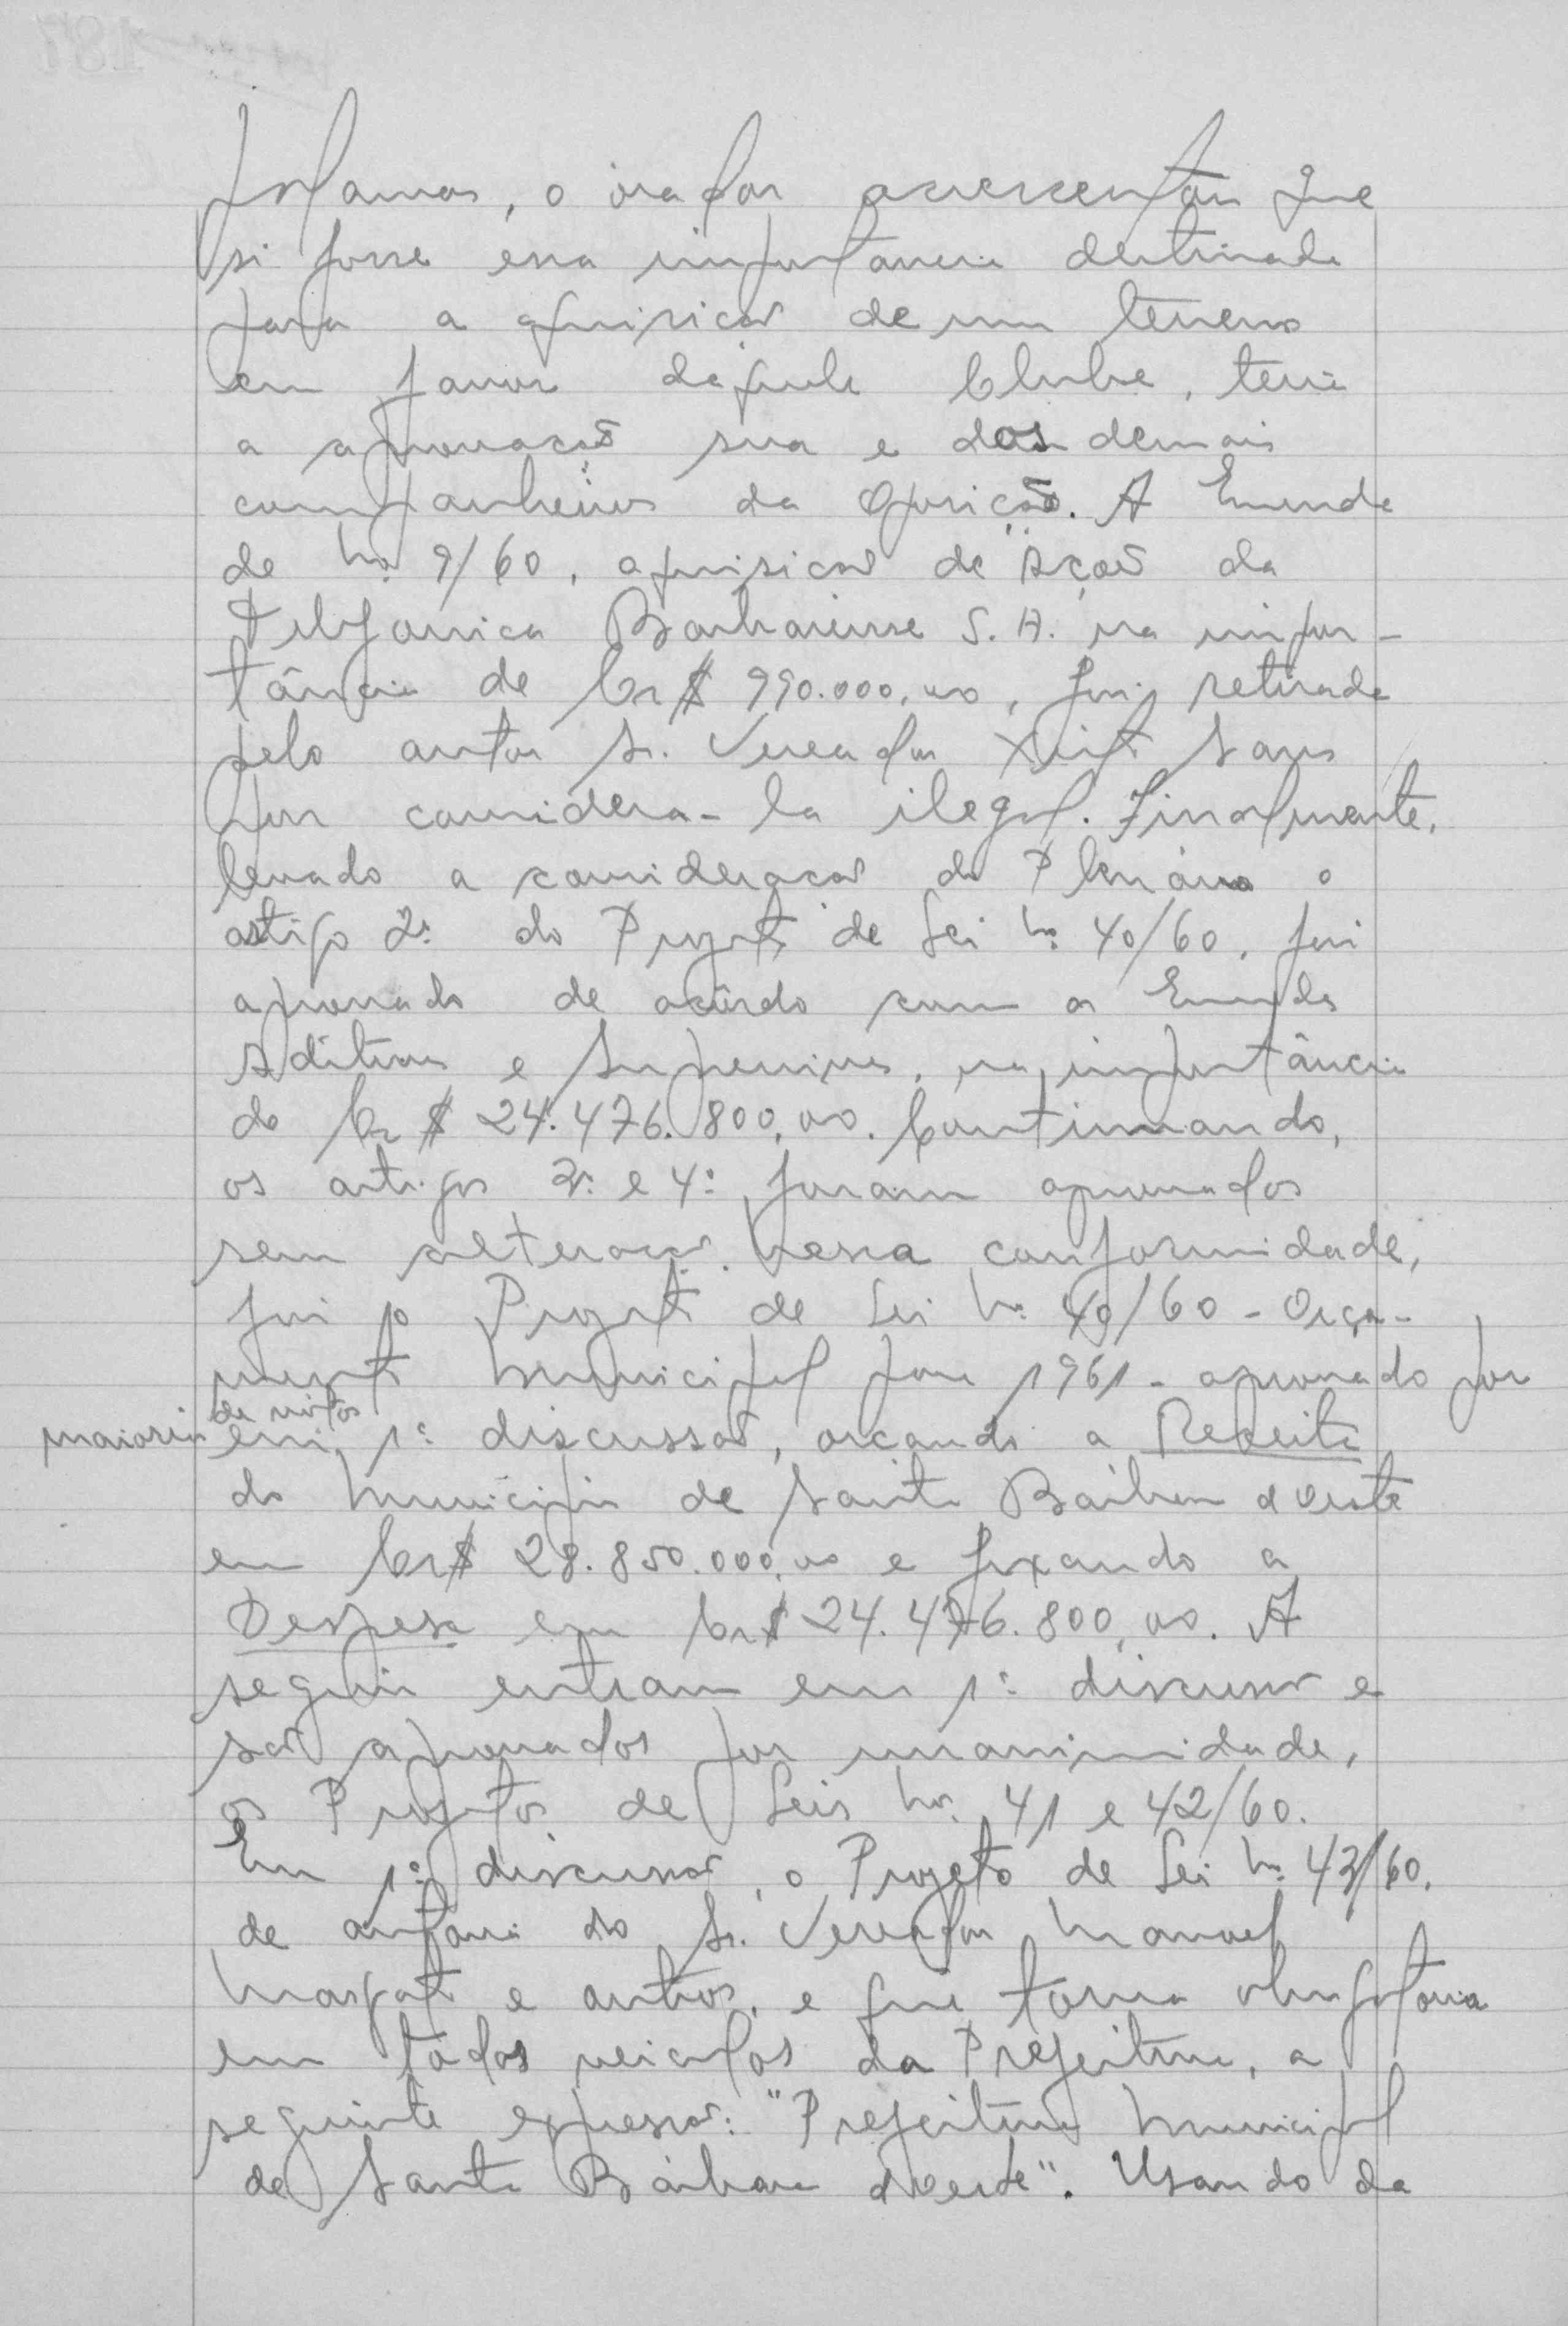 o orador acrescentou que
si fosse essa importancia destinada
para a aquisicão de um terreno
em favor daquele Clube, teria
a aprovacão sua e dos demais
companheiros da Oposicão. A Emenda
de nº 9/60, aquisicão de Ações da
Telefonica Barbarense S. A. na impor-
tância de Cr$ 990.000,00, foi retirada
pelo autor Sr. Vereador Sans
por considera-la ilegal. Finalmente,
levado a consideracão do Plenário o
artigo 2º do Projeto de Lei nº 40/60, foi
aprovado de acôrdo com as Emendas
Aditivas e Supressivas, na importância
de Cr$ 24.476.800,00. Continuando,
os artigos 3º e 4º foram aprovados
sem alteracão. Nessa conformidade,
foi o Projeto de Lei nº 40/60 - Orça-
mento Municipal para 1961 - aprovado por
maioria de votos em 1ª discussão, orçando a Receita
do Municipio de Santa Bárbara d'Oeste
em Cr$ 28.850.000,00 e fixando a
Despesa em Cr$ 24.476.800,00. A
seguir entram em 1ª discussão e
são aprovados por unanimidade,
os Projetos de Leis nos. 41 e 42/60.
Em 1ª discussão, o Projeto de Lei nº 43/60,
de autoria do Sr. Vereador Manoel
e outros, e que torna obrigatoria
em todos veiculos da Prefeitura, a
seguinte expressão: "Prefeitura Municipal
de Santa Bárbara d'Oeste". Usando da